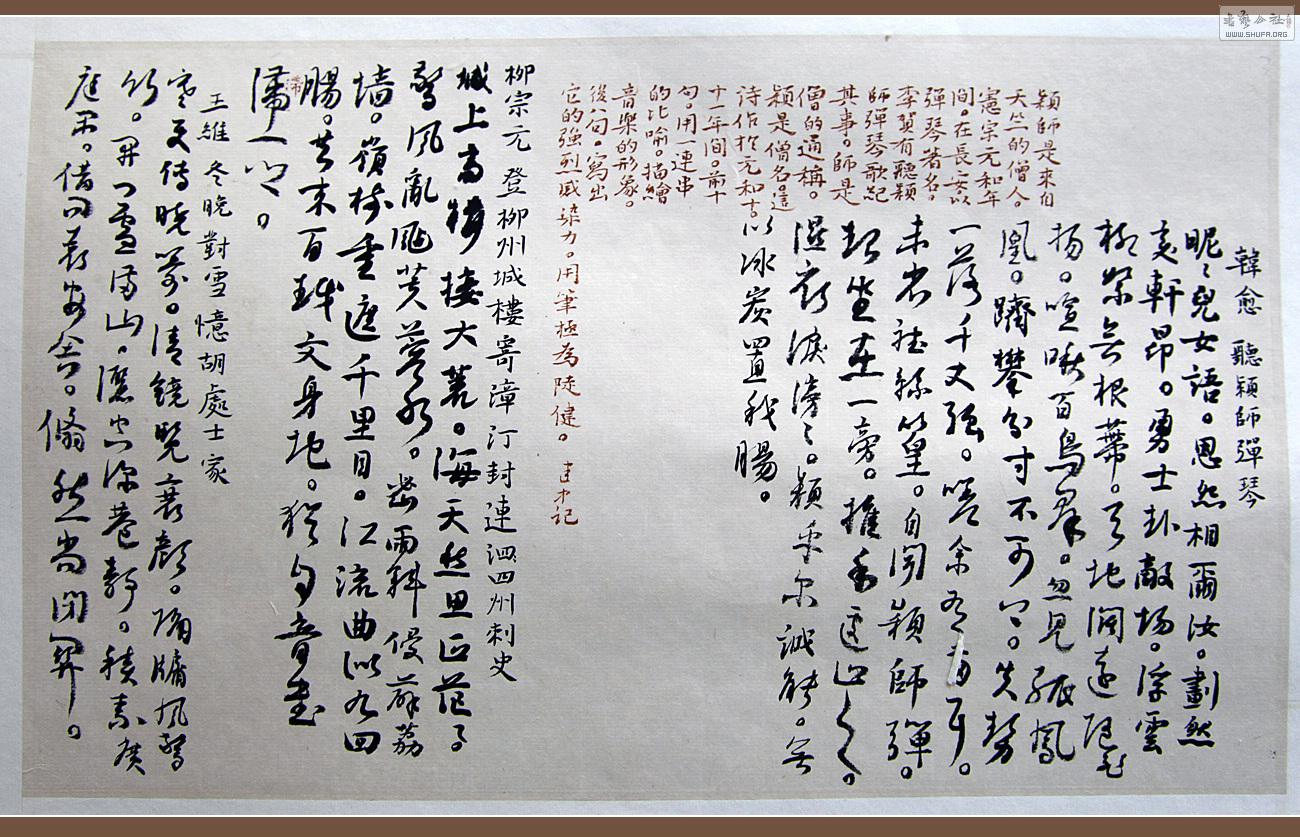 韓愈 聽穎師彈琴
昵〻兒女語。恩怨相爾汝。劃然
變軒昂。勇士赴敵場。浮雲
柳絮無根蒂。天地闊遠隨飛
揚。喧啾百鳥羣。忽見孤鳳
凰。躋攀分寸不可上。失勢
一落千丈強。嗟余有兩耳。
未省聽絲篁。自聞穎師彈。
起坐在一旁。推手遽止之。
濕衣淚滂〻。穎乎爾誠能。無
以冰炭置我腸。
穎師是來自
天竺的僧人。
憲宗元和年
間。在長安以
彈琴著名。
李賀有聽穎
師彈琴歌記
其事。師是
僧的通稱。
穎是僧名。這
詩作於元和
十一年間。前十
句。用一連串
的比喻。描繪
音樂的形象。
後句。寫出
它的強烈感染力。用筆極為陡健。
柳宗元 登柳州城樓寄漳汀封連泗四州刺史
城上高樓接大荒。海天愁思正茫〻。
驚風亂颭芙蓉水。密雨斜侵薜荔
墻。嶺樹重遮千里目。江流曲似九回
腸。共來百越文身地。猶自音書
滯一鄉。
滯
王維 冬晚對雪憶胡處士家
寒更傳曉箭。清鏡覽衰顏。隔牖風驚
竹。開門雪滿山。灑空深巷靜。積素廣
庭閑。借問袁安舍。翛然尚閉關。
書藝公社
WWW.SHUFA.ORG